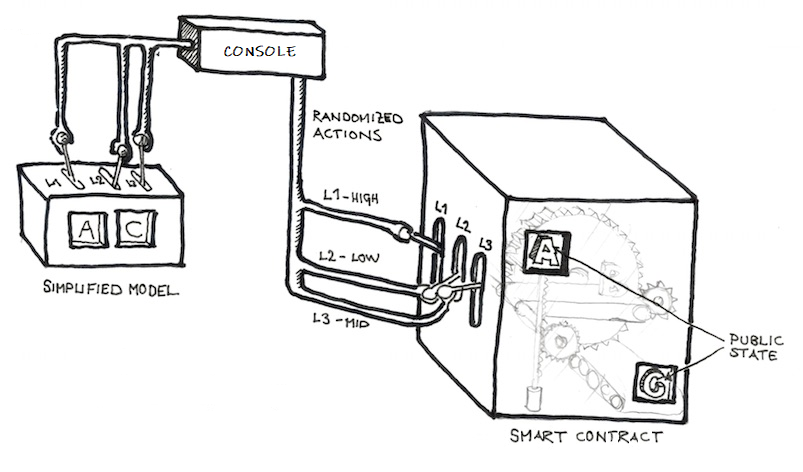 CONSOLE
RANDOMIZED
ACTIONS
L1 L2 L3
A C
SIMPLIFIED MODEL
L1-HIGH
L2-LOW
L3-MID
L1 L2 L3
A
G
PUBLIC
STATE
SMART CONTRACT